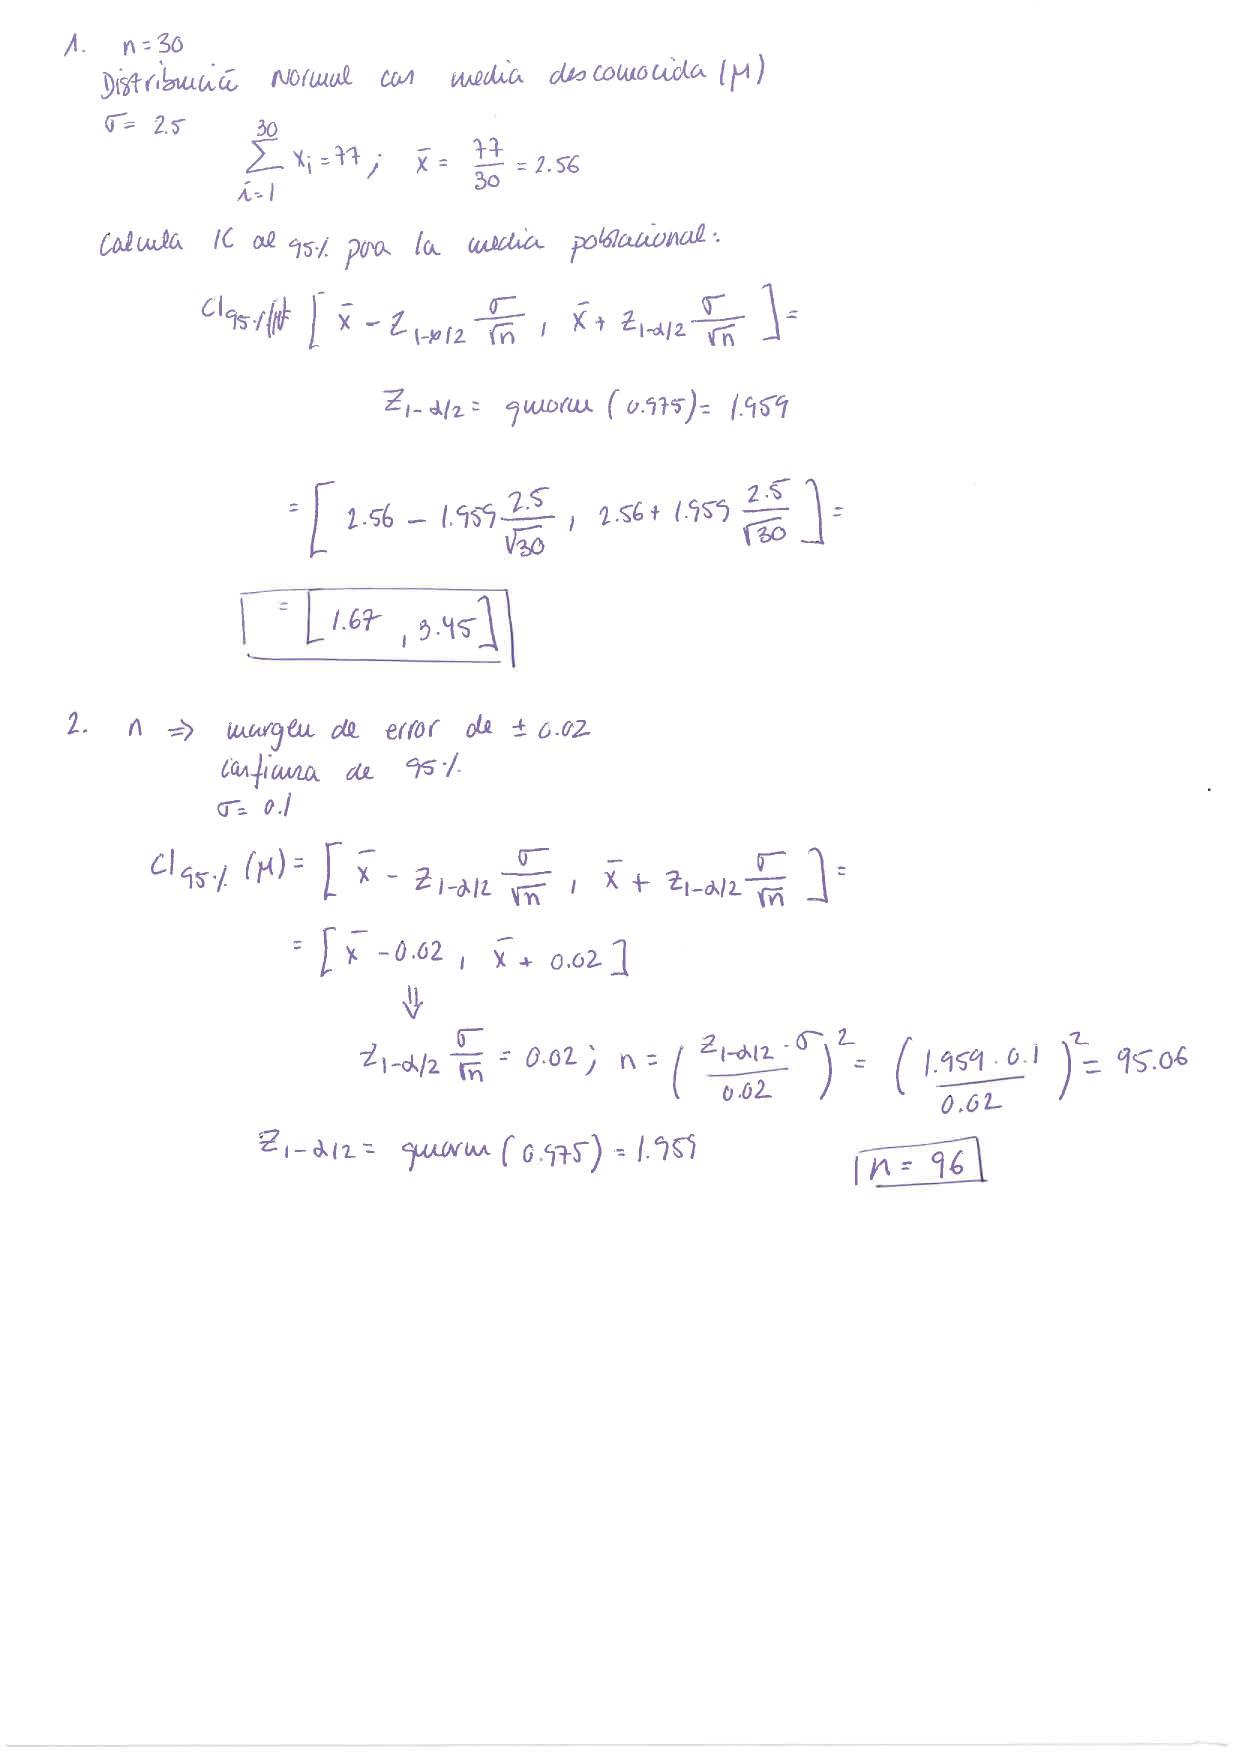 1. n=30
Distribució Normal con media desconocida (μ)
σ= 2.5 ∑_{i=1}^{30} x_i = 77 ; x̄ = 77/30 = 2.56
Calcula IC al 95% para la media poblacional:
CI_{95%} [ x̄ - Z_{1-α/2} σ/√n , x̄ + Z_{1-α/2} σ/√n ] =
Z_{1-α/2} = qnorm (0.975) = 1.959
= [ 2.56 - 1.959 2.5/√30 , 2.56 + 1.959 2.5/√30 ] =
= [1.67 , 3.45]
2. n ⇒ margen de error de ± 0.02
confianza de 95%
σ= 0.1
CI_{95%} (μ) = [ x̄ - Z_{1-α/2} σ/√n , x̄ + Z_{1-α/2} σ/√n ] =
= [ x̄ - 0.02 , x̄ + 0.02 ]
⇓
Z_{1-α/2} σ/√n = 0.02 ; n = ( Z_{1-α/2} · σ / 0.02 )^2 = ( 1.959 · 0.1 / 0.02 )^2 = 95.06
Z_{1-α/2} = qnorm (0.975) = 1.959
n = 96